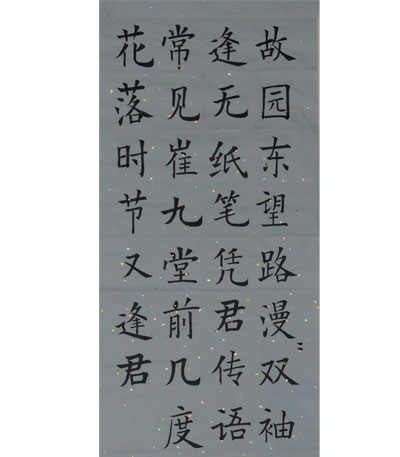 故园东望路漫〻双袖
逢无纸笔凭君传语
常见崔九堂前几度
花落时节又逢君